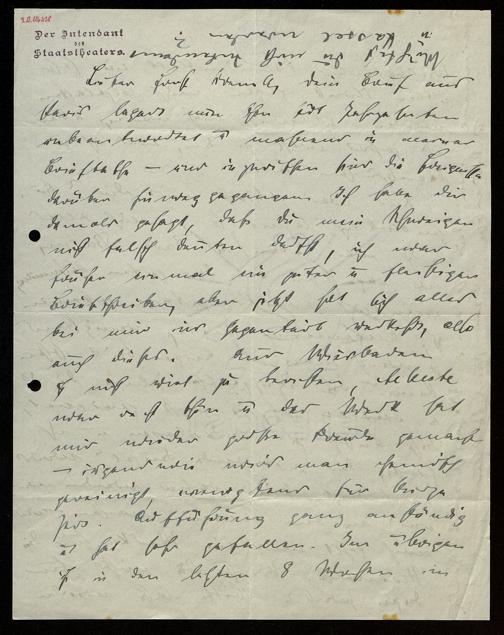 Der Intendant
des
Staatstheaters.
Lieber Ernst Krenek, dein Brief aus
Paris lagert nun schon seit
unbeantwortet u mahnend in meiner
Brieftasche — und inzwischen sind die Ereignisse
darüber hinweggegangen. Ich habe dir
damals gesagt, daß du mein Schweigen
nicht falsch deuten darfst, ich war
früher einmal ein guter u fleißiger
Briefschreiber, aber jetzt hat sich alles
bei mir ins Gegenteil verkehrt, also
auch dieses. Aus Wiesbaden
ist nicht viel zu berichten,
war erst u das Werk hat
mir wieder große Freude gemacht
— irgendwie wird man
gereinigt, wenigstens für kurze
Zeit. Aufführung ganz anständig
u hat sehr gefallen. Im übrigen
ist in den letzten 8 Wochen in